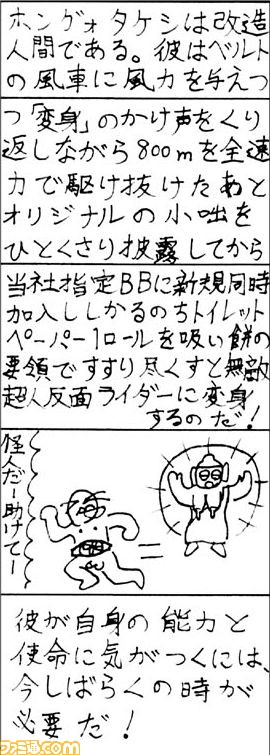 ホンゴォタケシは改造
人間である。彼はベルト
の風車に風力を与えつ
つ「変身」のかけ声をくり
返しながら800mを全速
力で駆け抜けたあと
オリジナルの小咄を
ひとくさり披露してから
当社指定BBに新規同時
加入ししかるのちトイレット
ペーパー1ロールを吸い餅の
要領ですすり尽くすと無敵
超人反面ライダーに変身
するのだ!
怪人だー助けてー
彼が自身の能力と
使命に気がつくには、
今しばらくの時が
必要だ!
ファミ通.com